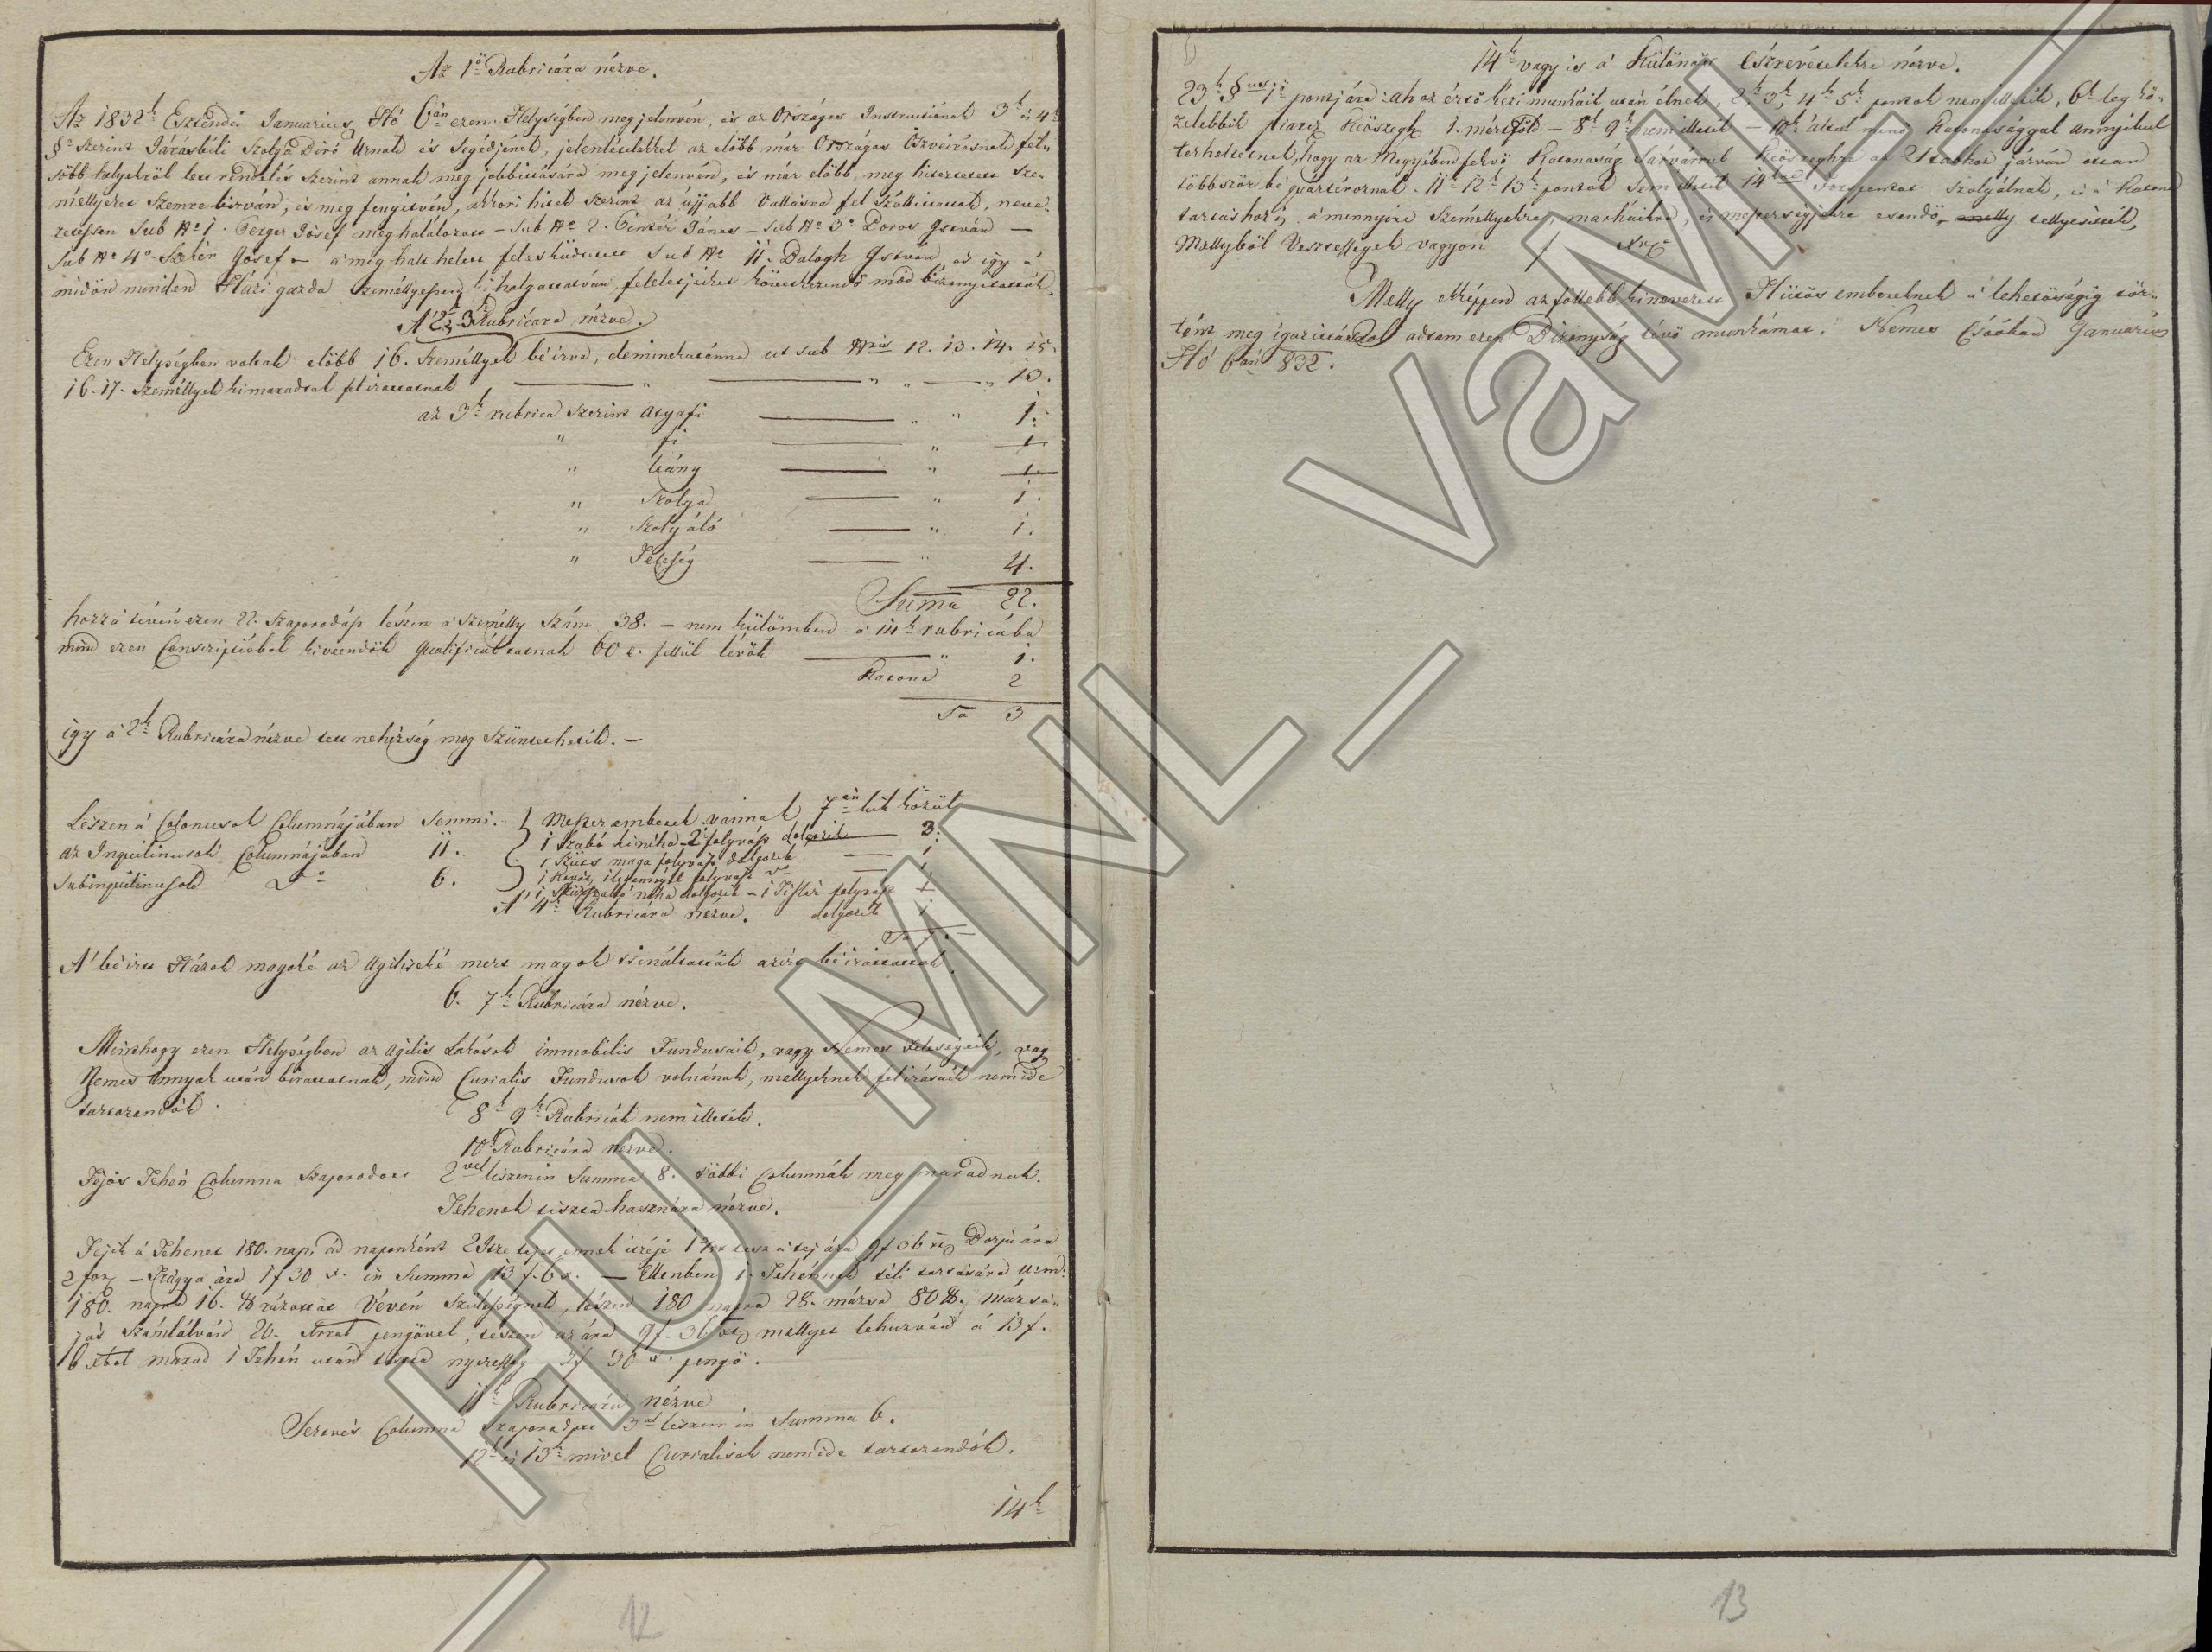 Az 1ö Rubricára nézve.
Az 1832k Esztendei Januarius Hó 6án ezen Helységben megjelenvén, és az Országos Instructiónak 3k és 4k
§a szerint Járásbéli Szolga Biró Urnak és Segédjének, jelenlétekkel az előbb már Országos Öszveirásnak fel-
sőbb helyekről lett rendelés szerint annak meg jobbittására megjelenvén, és már előbb meg hitettetett Sze-
méllyeket Szemre hivván, és meg fenyitvén, akkori hitek szerint az újjabb Vallásra fel szóllittottak, neve-
zetessen Sub No 1. Perger Jósef meghalálozott – Sub No 2. Péntek János – Sub No 3o Boros István –
Sub No 4o Fehér Jósef – a meg halt helett feleskűdtetett Sub No 11. Balogh Istvan, és igy a
midőn minden Házi gazda személlyessen ki halgattatván, feleletjeiket következendő mód bizonyitották.
A' 2k 3k Rubricára nézve.
Ezen Helységben valának előbb 16. Személlyek béirva, deminekutánna ut sub Nris 12. 13. 14. 15.
16. 17. Személlyek kimaradtak felirattatnak " " " 13.
az 3k rubrica Szerint atyafi " " 1.
" fi " 1.
" leány " 1.
" Szolga " 1.
" Szolgáló " 1.
" Feleség " 4.
Summa 22.
hozzá tévén ezen 22. Szaporodást lészen a' Személly Szám 38. – nem külömben a 14k rubricába
mind ezen Conscriptiobol kiveendők qualificáltatnak 60 e. fellül lévők " 1.
Katona 2
Sa 3
igy a' 2k Rubricára nézve lett nehézség meg Szüntethetik. –
Lészen a' Colonusok Columnájában Semmi. } Mester emberek vannak 7en kik közül
az Inquilinusok Columnájában 11. 1 Szabó hi néha 2 folyvást dolgozik 3.
1 Szücs maga folyvást dolgozik 1
Subinquilinusok Do 6. 1 Kovács folyvást do 1
néha dolgozik – 1 folyvást 1
A' 4k Rubricára nézve. dolgozik 1
Sa 7.
A' béirtt Házok magoké az agiliseké mert magok tsináltatták azért béirattattak.
6. 7k Rubricára nézve.
Minthogy ezen Helységben az agilis Lakosok immobilis Fundusait, vagy Nemes Feleségeik, vagy
Nemes Annyok után birattatnak, mind Curialis Fundusok volnának, mellyeknek felirásaik nem ide
tartozandók.
8k 9k Rubricák nem illetik.
10k Rubricára nézve.
Fejős Tehén Columna Szaporodott 2vel lészen in Summa 8. többi Columnák meg maradnak.
Tehenek tiszta hasznára nézve.
Fejik a' Tehenet 180. nap, ad naponként 2 Itze tejet, ennek itzéje tesz a' tej ára 9f 36 xr Borjú ára
2 for – Trágya ára 1f 30 x. in Summa 13 f. 6 x. – Ellenben 1. Tehénnek téli tartására u.m.
180. napra 16. ℔ Vévén Szükségnek, lészen 180 napra 28. mázsa 80 ℔. mázsá-
ját Számlálván 20. xrral pengővel, teszen az ára 9f. 36 xr mellyet lehuzván a' 13 f.
6 xbol marad 1 Tehén után tiszta nyereség 3f 30 x. pengő.
11k Rubricára nézve
Sertvés Columna Szaporodott 3al lészen in Summa 6.
12k és 13k mivel Curialisok nem ide tartozandók.
14k
12
14k vagy is a' Különös Észrevételekre nézve.
23k §usnak 1ö pontjára: ahoz értő kézi munkáik után élnek, 2k, 3k, 4k 5k pontok nem illetik, 6k leg kö-
zelebbik piartz Kőszegh 1. mértföld – 8k 9k nem illetik – 10k által menő Katonasággal annyibul
terheltetnek, hogy az Megyében fekvő Katonaság Sárvárrul Kőszeghre az Stabhoz járván ottan
többször bé quártéroznak. 11k 12k 13k pontok sem illetik 14k Forspontot Szolgálnak, és a' Katona
tartáshoz is a' mennyire Személlyekre, marháikra, és mesterségjekre esendő, tellyesittik,
Mellyből Veszteségek vagyon f xr
Melly eképpen az föllebb kinevezett Hütös embereknek a' lehetőségig tör-
tént meg igazittásokrol adtam ezen Bizonyság lévő munkámat. Nemes Csóóban Januarius
Hó 6án 832.
13
HU_MNL_VaML_